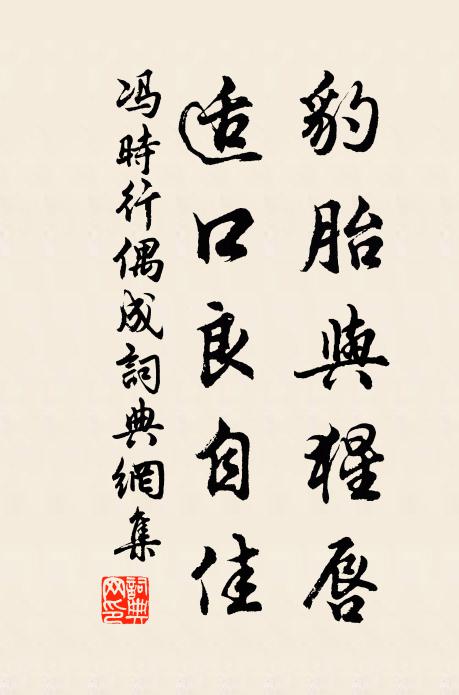 豹胎與猩唇
适口良自佳
冯時行偶成詞典網集
詞典網印